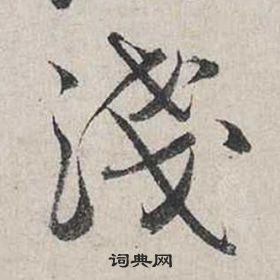 淺
词典网